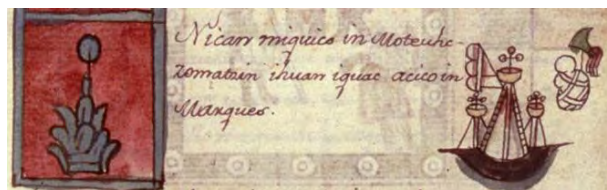 Nican miquico in Moteuhc-
zomatzin ihuan iquac acico in
Marques.